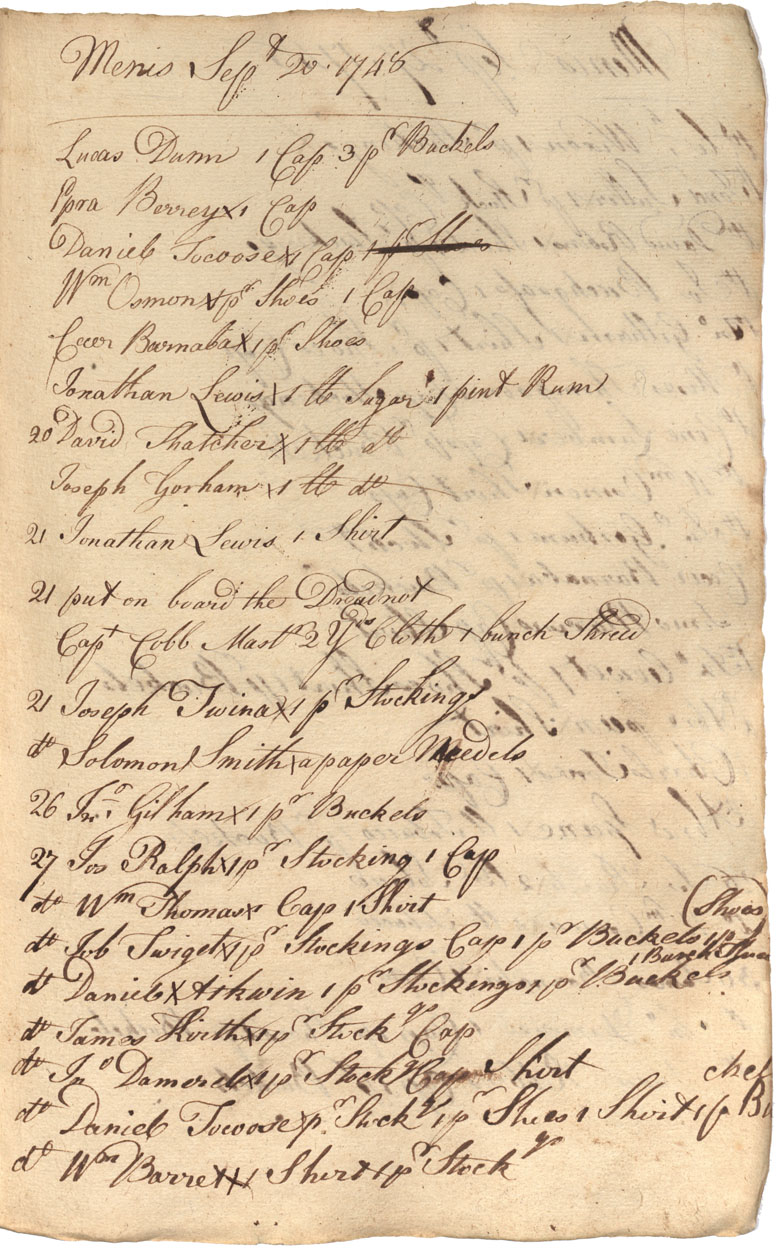 Menis Sept 20 1748
Lucas Dunn 1 Cap 3 pr Buckels
Berrey x 1 Cap
Daniel Tocoose x 1 Cap 1 pr Shoes
Wm Osmon x 1 pr Shoes 1 Cap
Barnaba x 1 pr Shoes
Jonathan Lewis x 1 lb Sugar 1 pint Rum
20 David Thatcher x 1 lb dt
Joseph Gorham x 1 lb dt
21 Jonathan Lewis 1 Shirt
21 put on board the Dreadnot
Capt Cobb Mastr 2 Yds Cloth 1 bunch Thread
21 Joseph Twina x 1 pr Stockings
dt Solomon Smith x a paper Needels
26 Jno Gilham x 1 pr Buckels
27 Jos Ralph x 1 pr Stocking 1 Cap
dt Wm Thomas x Cap 1 Shirt
(Shoes
dt Job Twiget x 1 pr Stockings Cap 1 pr Buckels 1 pr
1 Bunch
dt Daniel x Askwin 1 pr Stockings 1 pr Buckels
dt James x 1 pr Stockgs Cap
dt Jno x 1 pr Stockgs Cap Shirt
dt Daniel Tocoose x pr Stockgs 1 pr Shoes 1 Shirt 1 p Bu
ckel
dt Wm Barret x x 1 Shirt 1 pr Stockgs